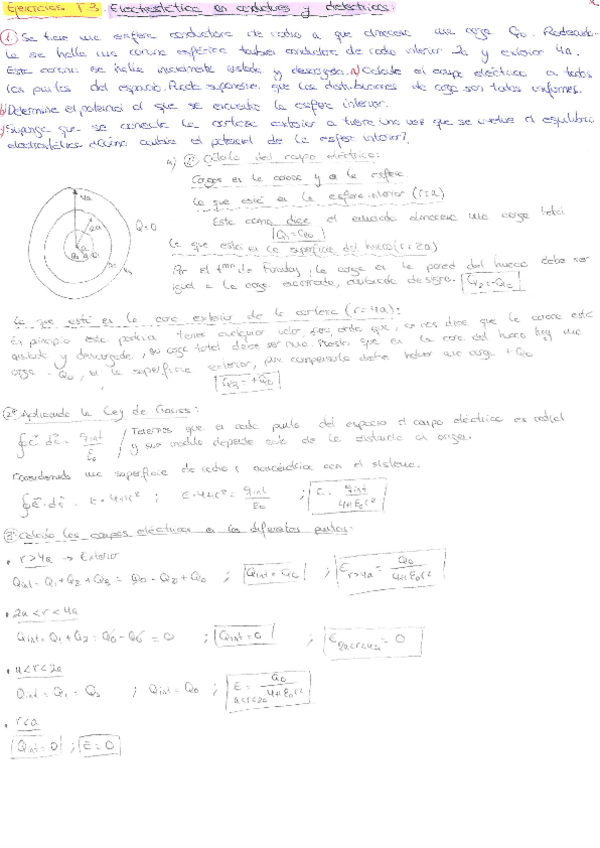 Ejercicios T.3 Electrostática en conductores y dieléctricos:
1. Se tiene una esfera conductora de radio a que almacena una carga Q0. Rodeando-
la se halla una corona esférica también conductora de radio interior 2a y exterior 4a.
Esta corona se halla inicialmente aislada y descargada. a) Calcule el campo eléctrico en todos
los puntos del espacio. Puede suponerse que las distribuciones de carga son todas uniformes.
b) Determine el potencial al que se encuentra la esfera interior.
c) Suponga que se conecta la corteza exterior a tierra una vez que se vuelve el equilibrio
electrostático ¿Cómo cambia el potencial de la esfera interior?
a) ① Cálculo del campo eléctrico:
Cargas en la corona y en la esfera.
La que está en la esfera interior (r=a)
Como dice el enunciado almacena una carga total
Q1=Q0
La que está en la superficie del hueco (r=2a)
Por el tma de Faraday, la carga en la pared del hueco debe ser
igual a la carga encerrada, cambiada de signo. Q2=-Q0
4a
2a
a
Q=0
La que está en la cara exterior de la corteza (r=4a):
En principio esta podría tener cualquier valor, pero, dado que, se nos dice que la corona está
aislada y descargada, su carga total debe ser nula. Puesto que en la cara del hueco hay una
carga -Q0, en la superficie exterior, para compensarla debe haber una carga +Q0
Q3=+Q0
2º Aplicando la Ley de Gauss:
∮E·ds = qint/ε0 / Tenemos que a cada punto del espacio el campo eléctrico es radial
y su módulo depende solo de la distancia al origen.
Considerando una superficie de radio r concéntrica con el sistema.
∮E·ds = E·4πr² ; E·4πr² = qint/ε0 ; E = qint/4πε0r²
3º Cálculo los campos eléctricos en los diferentes puntos:
• r>4a → Exterior
Qint = Q1+Q2+Q3 = Q0-Q0+Q0 ; Qint=Q0 ; E r>4a = Q0/4πε0r²
• 2a<r<4a
Qint = Q1+Q2 = Q0-Q0 = 0 ; Qint=0 ; E 2a<r<4a = 0
• a<r<2a
Qint = Q1 = Q0 ; Qint = Q0 ; E a<r<2a = Q0/4πε0r²
• r<a
Qint=0 ; E=0